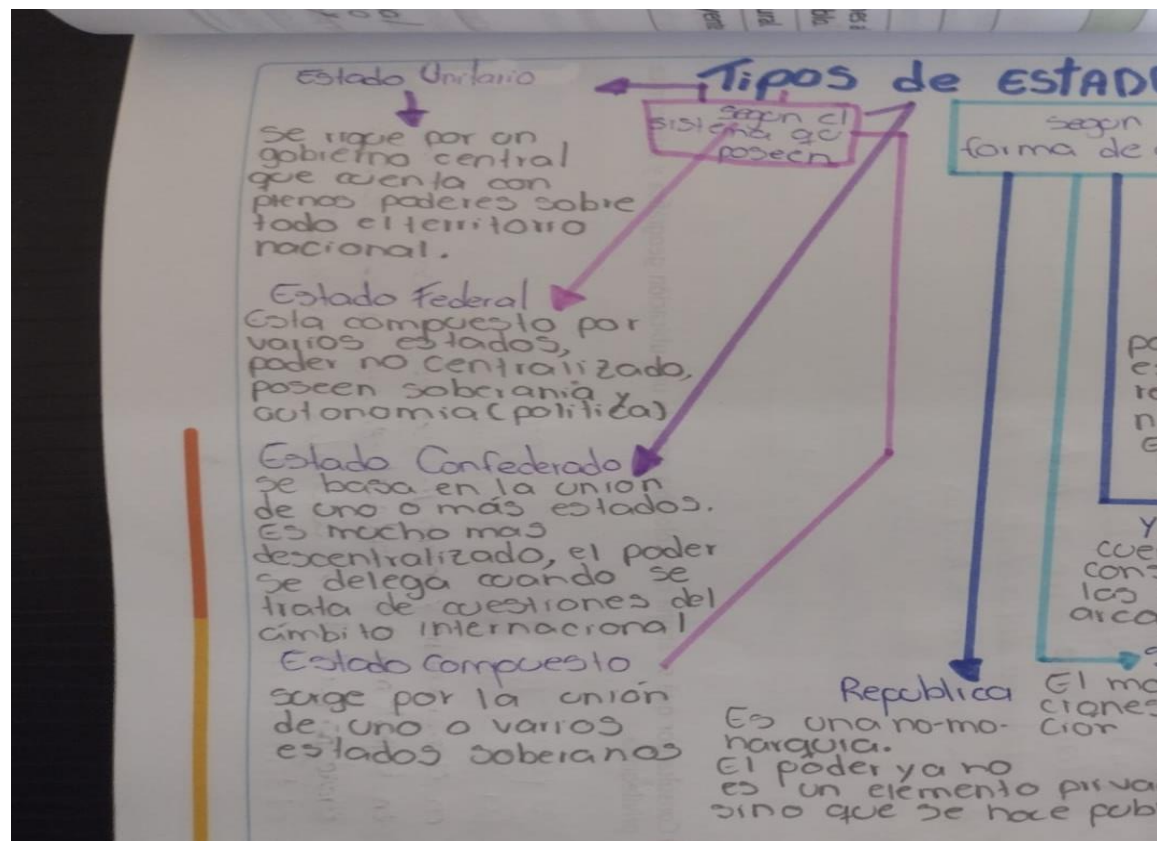 Tipos de ESTAD
segun el
sistema qe
poseen
Estado Unitario
se rige por un
gobierno central
que cuenta con
plenos poderes sobre
todo el territorio
nacional.
Estado Federal
Esta compuesto por
varios estados,
poder no centralizado,
poseen soberanía y
autonomia (política)
Estado Confederado
se basa en la unión
de uno o más estados.
Es mucho mas
descentralizado, el poder
se delega cuando se
trata de cuestiones del
ámbito internacional
Estado compuesto
surge por la unión
de uno o varios
estados soberanos
segun
forma de
Republica
Es una no-mo-
narquia.
El poder ya no
es un elemento priva
sino que se hace pub
El mo
ciones
ción
Y
cue
cons
las
arca